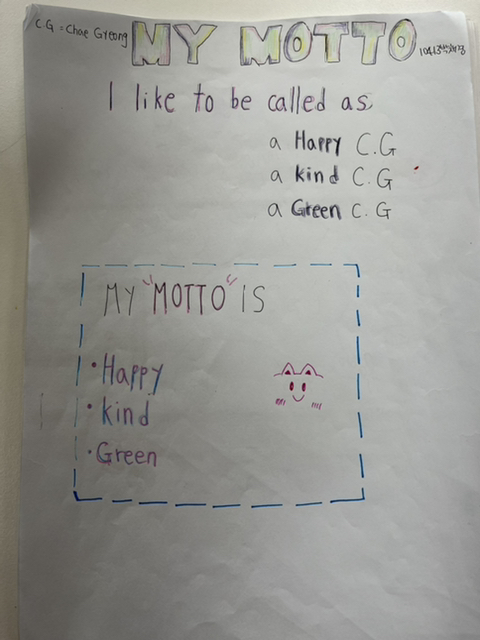 C.G = Chae Gyeong
MY MOTTO
I like to be called as
a Happy C.G
a kind C.G
a Green C.G
MY "MOTTO" IS
• Happy
• kind
• Green